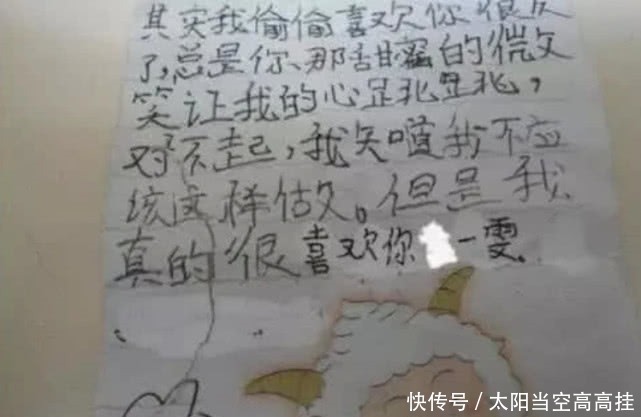 其实我偷偷喜欢你很久
了,总是你、那甜蜜的微
笑让我的心跳跳,
对不起,我知道我不应
该这样做。但是我
真的很喜欢你 一雯。
快传号 / 太阳当空高高挂